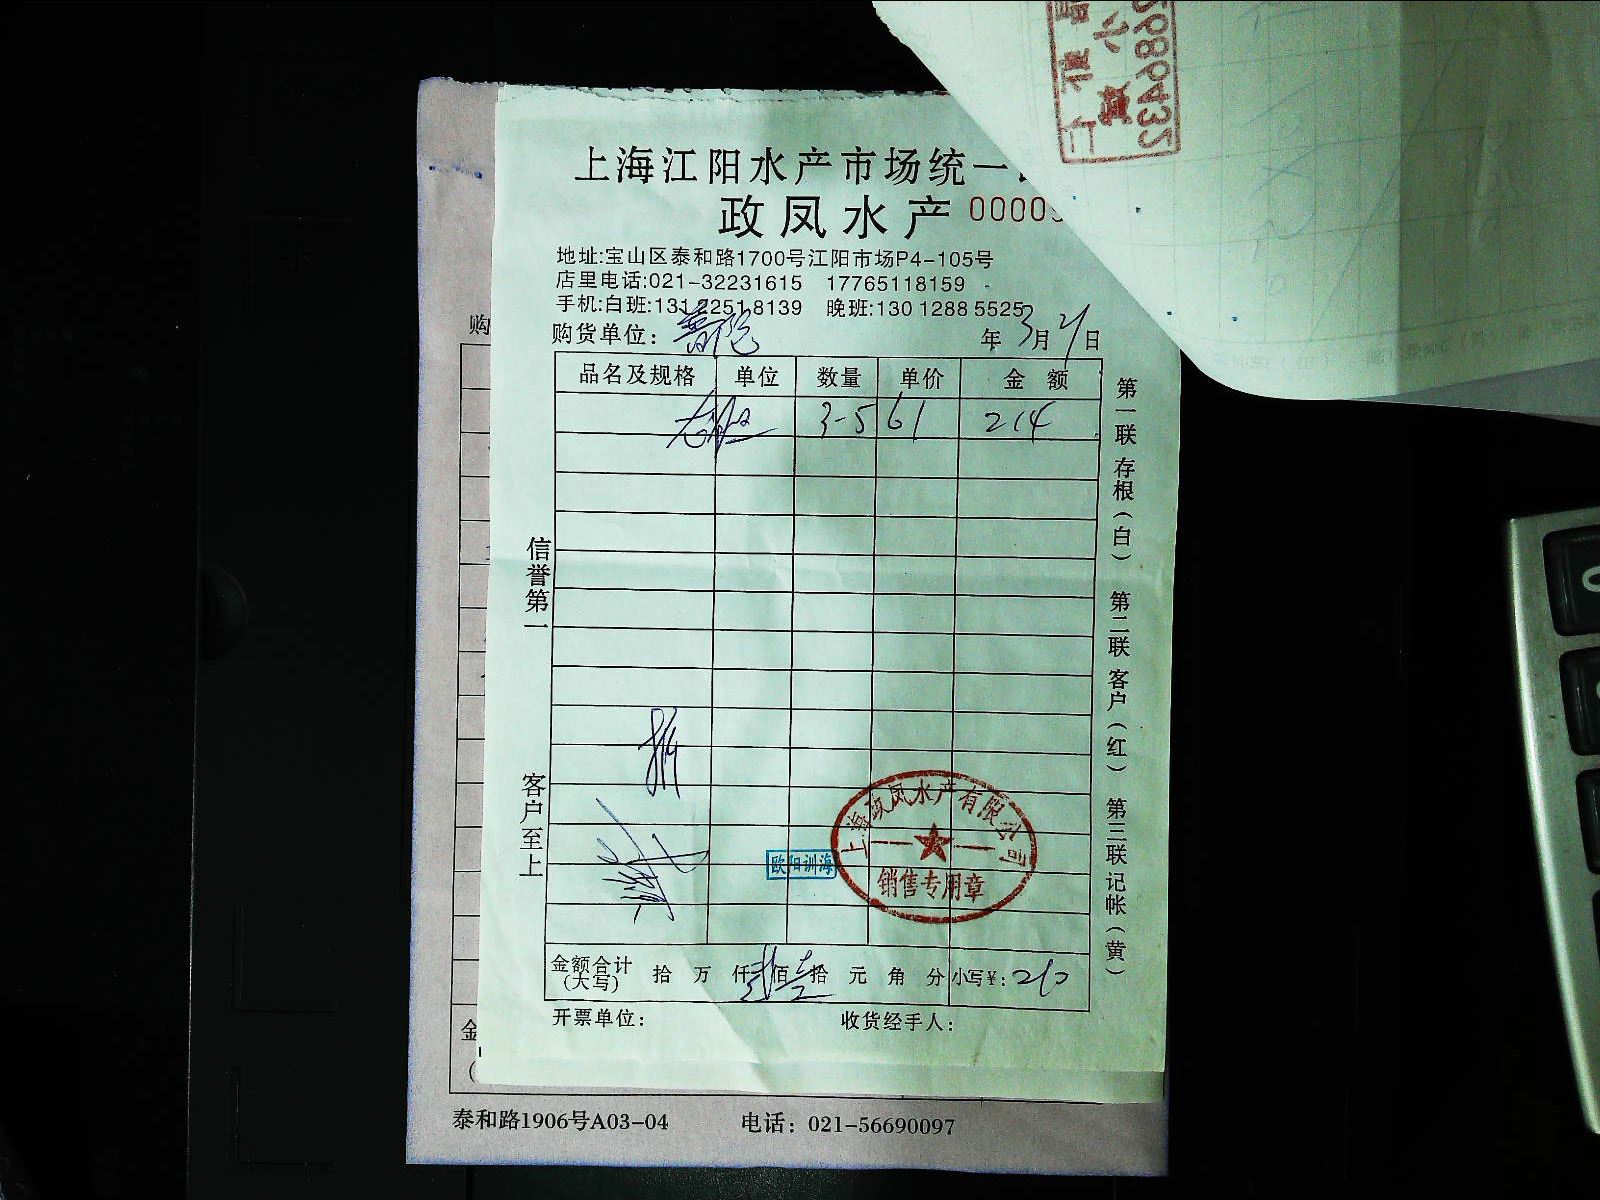 上海江阳水产市场统一
政凤水产 0000
地址:宝山区泰和路1700号江阳市场P4-105号
店里电话:021-32231615 17765118159
手机:白班:131 2251 8139 晚班:130 1288 5525
购货单位: 普陀
年 3月 21日
品名及规格 单位 数量 单价 金额
3-5 61 214
信誉第一
客户至上
第一联 存根(白) 第二联 客户(红) 第三联 记帐(黄)
上海政凤水产有限公司
销售专用章
欧阳训海
金额合计(大写) 拾 万 仟 贰佰 壹拾 元 角 分 小写¥: 210
开票单位: 收货经手人:
购
金
泰和路1906号A03-04 电话: 021-56690097